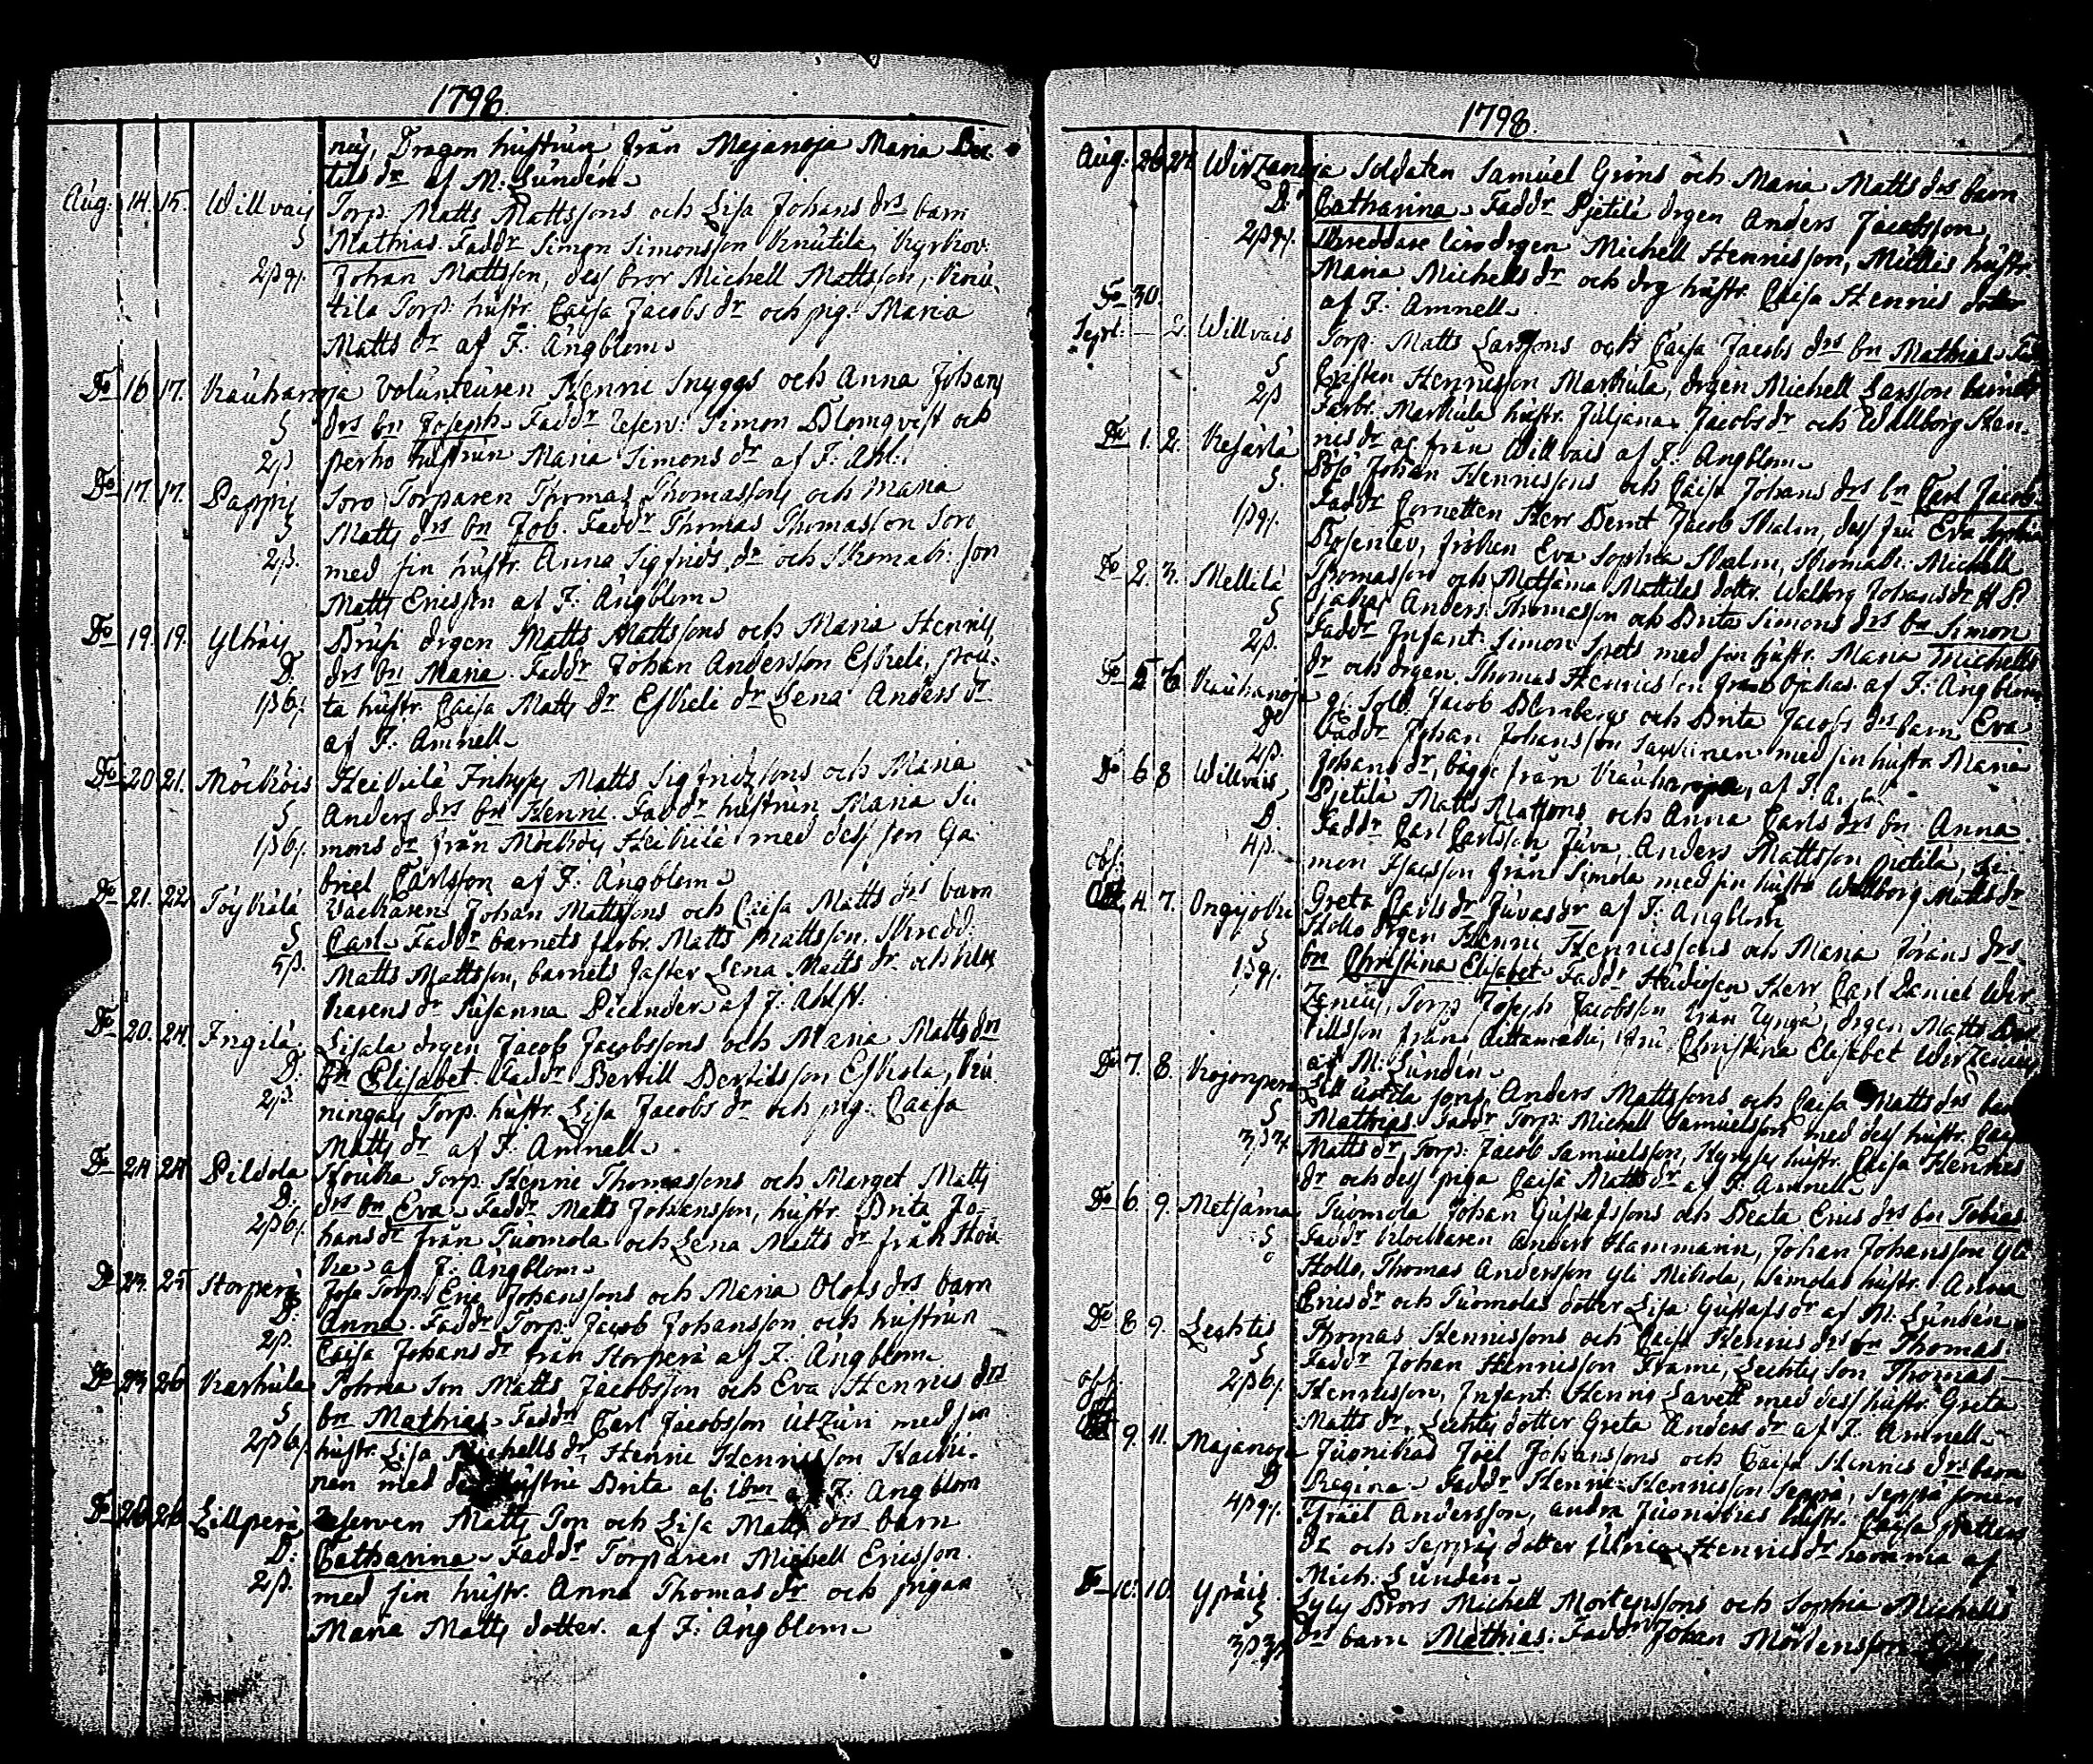 1798.
nij, Dragon hustrun från Mejanoja Maria Ber-
tils dr af M. Lunden.
Aug. 14. 15. Willvais Torp. Matts Mattssons och Lisa Johans drs barn
S Mathias. Faddr Simon Simonsson Knutila, Kyrkov.
2ß 9/. Johan Mattsson, dess bror Michell Mattsson, Knu-
tila Torp. hustr. Caisa Jacobs dr och pig. Maria
Matts dr af F. Ängblom
Do 16 17. Kauhanoja Volunteuren Henric Snyggs och Anna Johans
S drs bn Joseph. Faddr Reserv. Simon Blomqvist och
2ß perho hustrun Maria Simons dr af F. Ahl.
Do 17. 17. Pappis Soro Torparen Thomas Thomassons och Maria
S Matts drs bn Job. Faddr Thomas Thomasson Soro
2ß. med sin hustr. Anna Sigfrids dr och Skomak. son
Matts Ericsson af F. Ängblom
Do 19. 19. Yltäis Brusi drgen Matts Mattssons och Maria Henrics
D. drs bn Maria. Faddr Johan Andersson Eskeli, prou-
1ß 6/. ta hustr. Caisa Matts dr Eskeli dr Lena Anders dr
af F. Amnell
Do 20 21. Möcköis Heickilä Inhyses Matts Sigfridzsons och Maria
S Anders drs bn Henric. Faddr hustrun Maria Si-
1ß 6/. mons dr från Möcköis Heikilä med dess son Ga-
briel Carlsson af F. Ängblom
Do 21. 22 Töykälä Väckären Johan Mattssons och Caisa Matts drs barn
S Carl. Faddr barnets farbr. Matts Mattsson, Skredd.
5ß. Matts Mattsson, barnets faster Lena Matts dr och klok-
karens dr Susanna Picander af F. Ahlst.
Do 20. 24. Ingilä. Lisala drgen Jacob Jacobssons och Maria Matts drs
D. bn Elisabet. Faddr Bertill Bertilsson Eskola, Ku-
2ß. ningas Torp. hustr. Lisa Jacobs dr och pig. Caisa
Matts dr af F. Amnell
Do 24 24 Pildola Houka Torp. Henric Thomassons och Marget Matts
D. drs bn Eva. Faddr Matts Johansson, hustr. Brita Jo-
2ß 6/. hans dr från Tuomola och Lena Matts dr från Hou-
ka af F. Ängblom
Do 23. 25 Storperä Josa Torp. Eric Johanssons och Maria Olofs drs barn
D. Anna. Faddr Torp. Jacob Johansson och hustrun
2ß. Caisa Johans dr från Storperä af F. Ängblom
Do 23 26 Karhula Pohna Son Matts Jacobsson och Eva Henrics drs
S bn Mathias. Faddr Carl Jacobsson Utzuri med sin
2ß 6/. hustr. Lisa Michells dr, Henric Henricsson Hacki-
nen med hustru Brita af F. Ängblom
Do 26 26 Lillperä Reserven Matts Ton och Lisa Matts drs barn
D. Catharina. Faddr Torparen Michell Ericsson
2ß. med sin hustr. Anna Thomas dr och pigan
Maria Matts dotter. af F. Ängblom
1798.
Aug. 26 27. Wirzanoja Soldaten Samuel Gröns och Maria Matts drs barn
D. Catharina. Faddr Pietilä drgen Anders Jacobsson,
2ß 9/. Skreddare lärodrgen Michell Henricsson, hustr.
Maria Michells dr och drg hustr. Caisa Henrics dotter
af F. Amnell
Do 30.
Sept. – 2. Willvais Torp. Matts Larssons och Caisa Jacobs drs bn Mathias.
S Christen Henricsson Markula, drgen Michell Larsson barnets
2ß Farbr. Markula hustr. Juljana Jacobs dr och Wallborg Hen-
rics dr från Willvais af F. Ängblom
Do 1. 2. Kesärlä Johan Henricssons och Caisa Johans drs bn Carl Jacob
S. Faddr Cornetten Herr Bernt Jacob Skalm, dess fru Eva Sophia
1ß 9/. Rosenlev, fröken Eva Sophia Skalm, Skomak. Michell
Thomasson och Metsäma Mattilas dottr. Walborg Johans dr
Do 2. 3. Mellilä Ojahas Anders Thomasson och Brita Simons drs bn Simon
S Faddr Infant. Simon Spets med son hustr. Maria Michells
2ß. dr och drgen Thomas Henricsson från Ojahas af F. Ängblom
Do 5 6 Kauhanoja Sold. Jacob Blombergs och Brita Jacobs drs barn Eva
D Faddr Johan Johansson Sauhinen med sin hustr. Maria
2ß. Johans dr, bägge från Kauhanoja, af F.
Do 6 8 Willvais Pietilä Matts Mattsons och Anna Carls drs bn Anna
D. Faddr Carl Carlsson Juva, Anders Mattsson Pietilä, Si-
4ß. mon Isacsson från Simola med sin hustr. Wallborg Matts dr
obs. Greta Carls dr Juvas dr af F. Ängblom
4. 7. Ongijoki Hollo drgen Henric Henricssons och Maria Jörans drs
S bn Christina Elisabet. Faddr Studiosen Herr Carl Daniel Wir-
1ß 9/. zenius, Torp. Joseph Jacobsson från Tynga, drgen Matts Ber-
tillsson från, Fru Christina Elisabet Wirzenius
af M. Lunden
Do 7. 8. Kojonperä Anders Mattssons och Caisa Matts drs barn
S Mathias. Faddr Torp. Michell Samuelsson med dess hustr. Caisa
3ß 3/. Matts dr, Torp. Jacob Samuelsson, hustr. Caisa Henrics
dr och dess piga Caisa Matts dr af F. Amnell
Do 6. 9. Metsäma Tuomola Johan Gustafssons och Beata Erics drs bn Tobias
S Faddr klockaren Anders Hammarin, Johan Johansson Yli
Hollo, Thomas Andersson Yli Mikola, Simolas hustr. Anna
Erics dr och Tuomolas dotter Lisa Gustafs dr af M. Lunden
Do 8 9. Lechtis Thomas Henricssons och Caisa Henrics drs bn Thomas
S Faddr Johan Henricsson Frame, Lechtis son Thomas
2ß 6/. Henricsson, Infant. Henric Lavett med dess hustr. Greta
Matts dr, Lechtis dotter Greta Anders dr af F. Amnell
9. 11. Majanoja Juonikas Joel Johanssons och Caisa Henrics drs barn
D Regina. Faddr Henric Henricsson Seppä, Seppä sonen
4ß 9/. Israel Andersson, andra Juonikas hustr. Caisa
dr och Seppäs dotter Ulrica Henrics dr hemma af
Mich. Lunden
Do 10. 10. Ypäis. Syly Brors Michell Mortenssons och Sophia Michells
S drs barn Mathias. Faddr Johan Mortensson
3ß 3/.